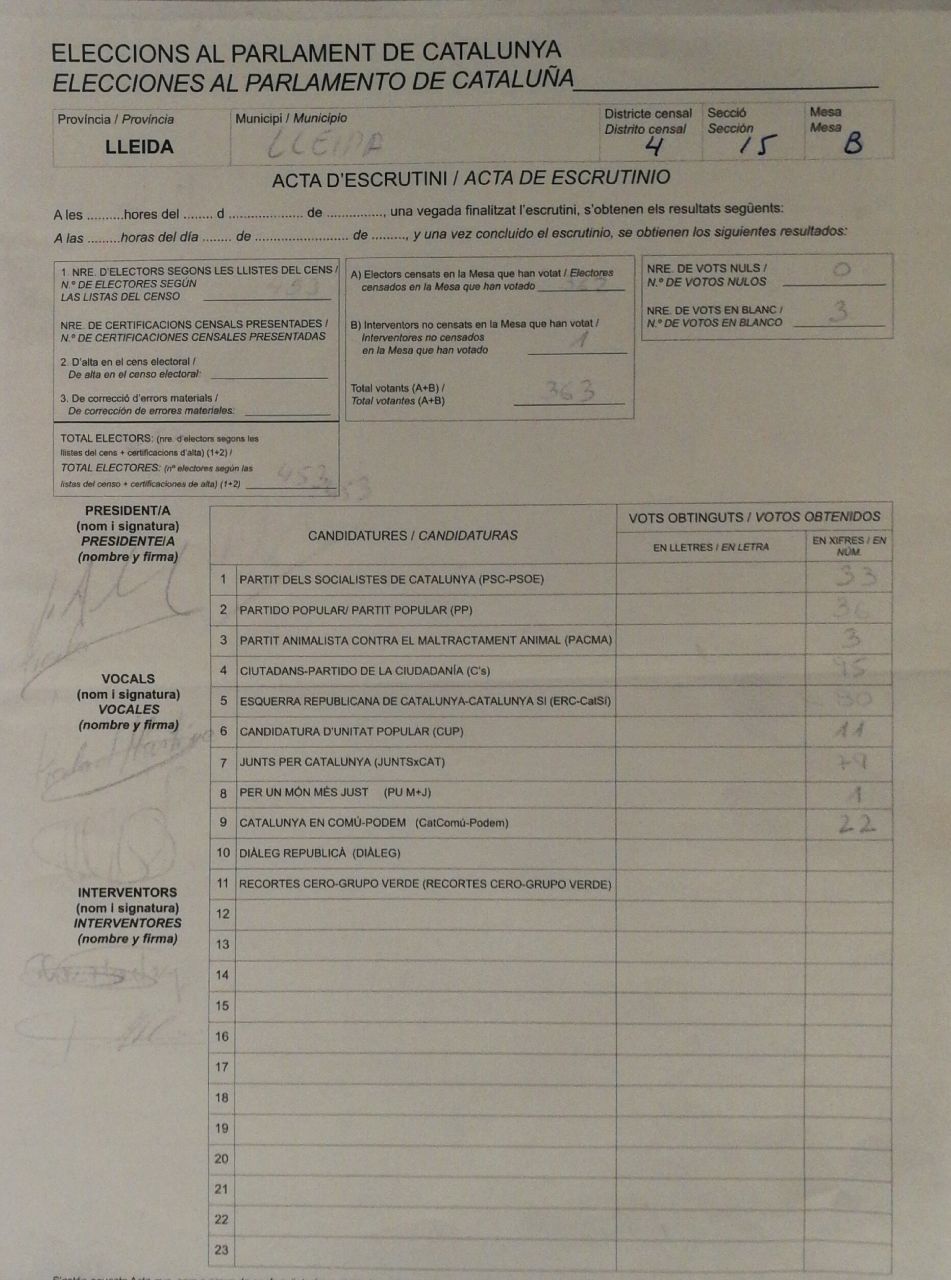 ELECCIONS AL PARLAMENT DE CATALUNYA
ELECCIONES AL PARLAMENTO DE CATALUÑA
Província / Provincia
LLEIDA
Municipi / Municipio
LLEIDA
Districte censal
Distrito censal
4
Secció
Sección
15
Mesa
Mesa
B
ACTA D'ESCRUTINI / ACTA DE ESCRUTINIO
A les .........hores del ........ d .................... de ..............., una vegada finalitzat l'escrutini, s'obtenen els resultats següents:
A las .........horas del día ........ de .......................... de ........., y una vez concluido el escrutinio, se obtienen los siguientes resultados:
1. NRE. D'ELECTORS SEGONS LES LLISTES DEL CENS /
N.º DE ELECTORES SEGÚN
LAS LISTAS DEL CENSO 453
NRE. DE CERTIFICACIONS CENSALS PRESENTADES /
N.º DE CERTIFICACIONES CENSALES PRESENTADAS
2. D'alta en el cens electoral /
De alta en el censo electoral:
3. De correcció d'errors materials /
De corrección de errores materiales:
TOTAL ELECTORS: (nre. d'electors segons les
llistes del cens + certificacions d'alta) (1+2) /
TOTAL ELECTORES: (nº electores según las
listas del censo + certificaciones de alta) (1+2) 453
A) Electors censats en la Mesa que han votat / Electores
censados en la Mesa que han votado
B) Interventors no censats en la Mesa que han votat /
Interventores no censados
en la Mesa que han votado 1
Total votants (A+B) /
Total votantes (A+B) 363
NRE. DE VOTS NULS /
N.º DE VOTOS NULOS 0
NRE. DE VOTS EN BLANC /
N.º DE VOTOS EN BLANCO 3
PRESIDENT/A
(nom i signatura)
PRESIDENTE/A
(nombre y firma)
VOCALS
(nom i signatura)
VOCALES
(nombre y firma)
INTERVENTORS
(nom i signatura)
INTERVENTORES
(nombre y firma)
CANDIDATURES / CANDIDATURAS
VOTS OBTINGUTS / VOTOS OBTENIDOS
EN LLETRES / EN LETRA
EN XIFRES / EN
NÚM.
1 PARTIT DELS SOCIALISTES DE CATALUNYA (PSC-PSOE) 33
2 PARTIDO POPULAR/ PARTIT POPULAR (PP) 36
3 PARTIT ANIMALISTA CONTRA EL MALTRACTAMENT ANIMAL (PACMA) 3
4 CIUTADANS-PARTIDO DE LA CIUDADANÍA (C's) 95
5 ESQUERRA REPUBLICANA DE CATALUNYA-CATALUNYA SI (ERC-CatSí)
6 CANDIDATURA D'UNITAT POPULAR (CUP) 11
7 JUNTS PER CATALUNYA (JUNTSxCAT) 79
8 PER UN MÓN MÉS JUST (PU M+J) 1
9 CATALUNYA EN COMÚ-PODEM (CatComú-Podem) 22
10 DIÀLEG REPUBLICÀ (DIÀLEG)
11 RECORTES CERO-GRUPO VERDE (RECORTES CERO-GRUPO VERDE)
12
13
14
15
16
17
18
19
20
21
22
23